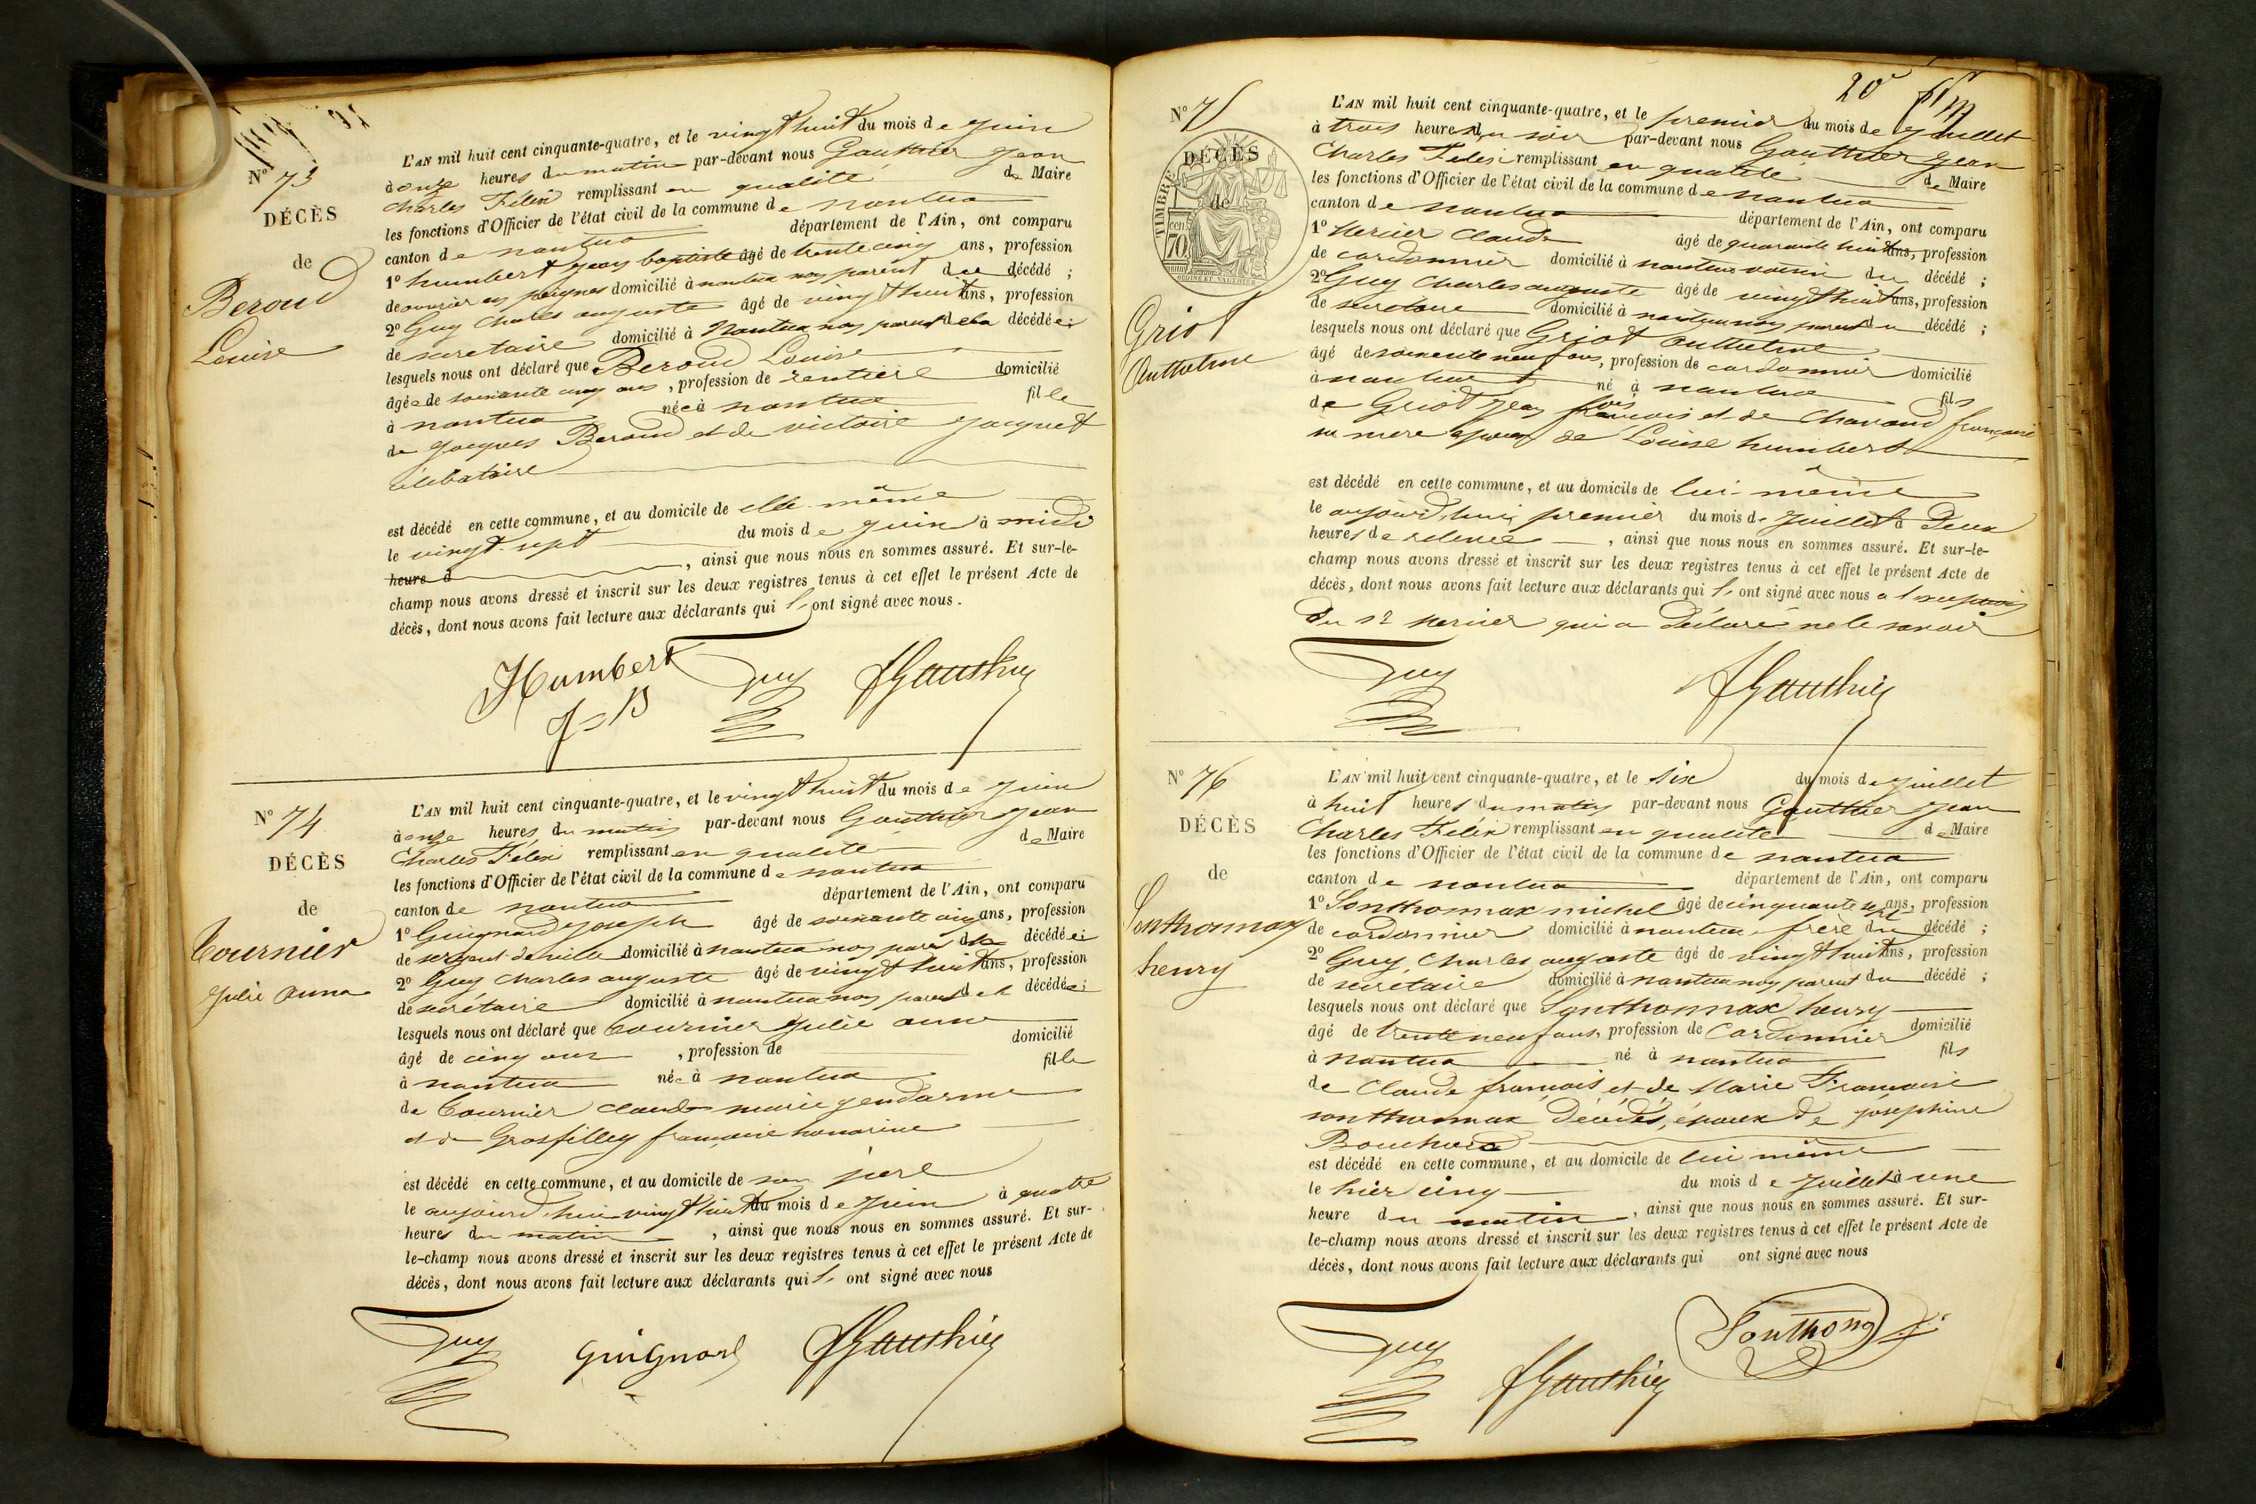 N° 73
DÉCÈS
de
Beroud
Louise
L'AN mil huit cent cinquante-quatre, et le vingt huit du mois de juin
à onze heures du matin par-devant nous Gauthier Jean
Charles Félix remplissant en qualité de Maire
les fonctions d'Officier de l'état civil de la commune de nantua
canton de nantua département de l'Ain, ont comparu
1° humbert jean baptiste âgé de trente cinq ans, profession
de ouvrier en peignes domicilié à nantua non parent de décédé ;
2° Guy Charles auguste âgé de vingt huit ans, profession
de secretaire domicilié à Nantua non parent de la décédée ;
lesquels nous ont déclaré que Beroud Louise
âgée de soixante cinq ans, profession de rentiere domicilié
à nantua née à nantua fille
de Jacques Beroud et de victoire jacquet
célibataire
est décédé en cette commune, et au domicile de elle même
le vingt-sept du mois de juin à midi
heure d , ainsi que nous nous en sommes assuré. Et sur-le-
champ nous avons dressé et inscrit sur les deux registres tenus à cet effet le présent Acte de
décès, dont nous avons fait lecture aux déclarants qui ont signé avec nous.
Humbert Guy Gauthier
J B
N° 74
DÉCÈS
de
Tournier
Julie anna
L'AN mil huit cent cinquante-quatre, et le vingt huit du mois de juin
à onze heures du matin par-devant nous Gauthier Jean
Charles Félix remplissant en qualité de Maire
les fonctions d'Officier de l'état civil de la commune de nantua
canton de nantua département de l'Ain, ont comparu
1° Guignard joseph âgé de soixante cinq ans, profession
de sergent de ville domicilié à nantua non parent de la décédée ;
2° Guy charles auguste âgé de vingt huit ans, profession
de secrétaire domicilié à nantua non parent de la décédée ;
lesquels nous ont déclaré que Tournier Julie anna
âgé de cinq ans , profession de domicilié
à nantua née à nantua fille
de Tournier claude marie gendarme
et de Grosfilley françoise honorine
est décédé en cette commune, et au domicile de son père
le aujourd'hui vingt huit du mois de juin à quatre
heures du matin , ainsi que nous nous en sommes assuré. Et sur-
le-champ nous avons dressé et inscrit sur les deux registres tenus à cet effet le présent Acte de
décès, dont nous avons fait lecture aux déclarants qui ont signé avec nous
Guy Guignard Gauthier
20
N° 75
DÉCÈS
de
TIMBRE
70
Griot
Anthelme
L'AN mil huit cent cinquante-quatre, et le premier du mois de juillet
à trois heures du soir par-devant nous Gauthier Jean
Charles Felix remplissant en qualité de Maire
les fonctions d'Officier de l'état civil de la commune de nantua
canton de nantua département de l'Ain, ont comparu
1° Mercier Claude âgé de quarante huit ans, profession
de cordonnier domicilié à nantua voisin du décédé ;
2° Guy Charles auguste âgé de vingt huit ans, profession
de secretaire domicilié à nantua non parent du décédé ;
lesquels nous ont déclaré que Griot anthelme
âgé de soixante neuf ans, profession de cordonnier domicilié
à nantua né à nantua fils
de Griot jean françois et de Chavand françoise
sa mere époux de Louise humbert
est décédé en cette commune, et au domicile de lui-même
le aujourd'hui premier du mois de juillet à deux
heures de relevée , ainsi que nous nous en sommes assuré. Et sur-le-
champ nous avons dressé et inscrit sur les deux registres tenus à cet effet le présent Acte de
décès, dont nous avons fait lecture aux déclarants qui ont signé avec nous a l'exception
du sr Mercier qui a déclaré ne le savoir
Guy Gauthier
N° 76
DÉCÈS
de
Sonthonnax
henry
L'AN mil huit cent cinquante-quatre, et le six du mois de juillet
à huit heures du matin par-devant nous Gauthier Jean
Charles Félix remplissant en qualité de Maire
les fonctions d'Officier de l'état civil de la commune de nantua
canton de nantua département de l'Ain, ont comparu
1° Sonthonnax michel âgé de cinquante sept ans, profession
de cordonnier domicilié à nantua frère du décédé ;
2° Guy Charles auguste âgé de vingt huit ans, profession
de secrétaire domicilié à nantua non parent du décédé ;
lesquels nous ont déclaré que Sonthonnax henry
âgé de trente neuf ans, profession de Cordonnier domicilié
à nantua né à nantua fils
de Claude françois et de Marie Françoise
sonthonnax décédés, époux de joséphine
Bouchard
est décédé en cette commune, et au domicile de lui même
le hier cinq du mois de juillet à une
heure du matin , ainsi que nous nous en sommes assuré. Et sur-
le-champ nous avons dressé et inscrit sur les deux registres tenus à cet effet le présent Acte de
décès, dont nous avons fait lecture aux déclarants qui ont signé avec nous
Guy Gauthier Sonthonax